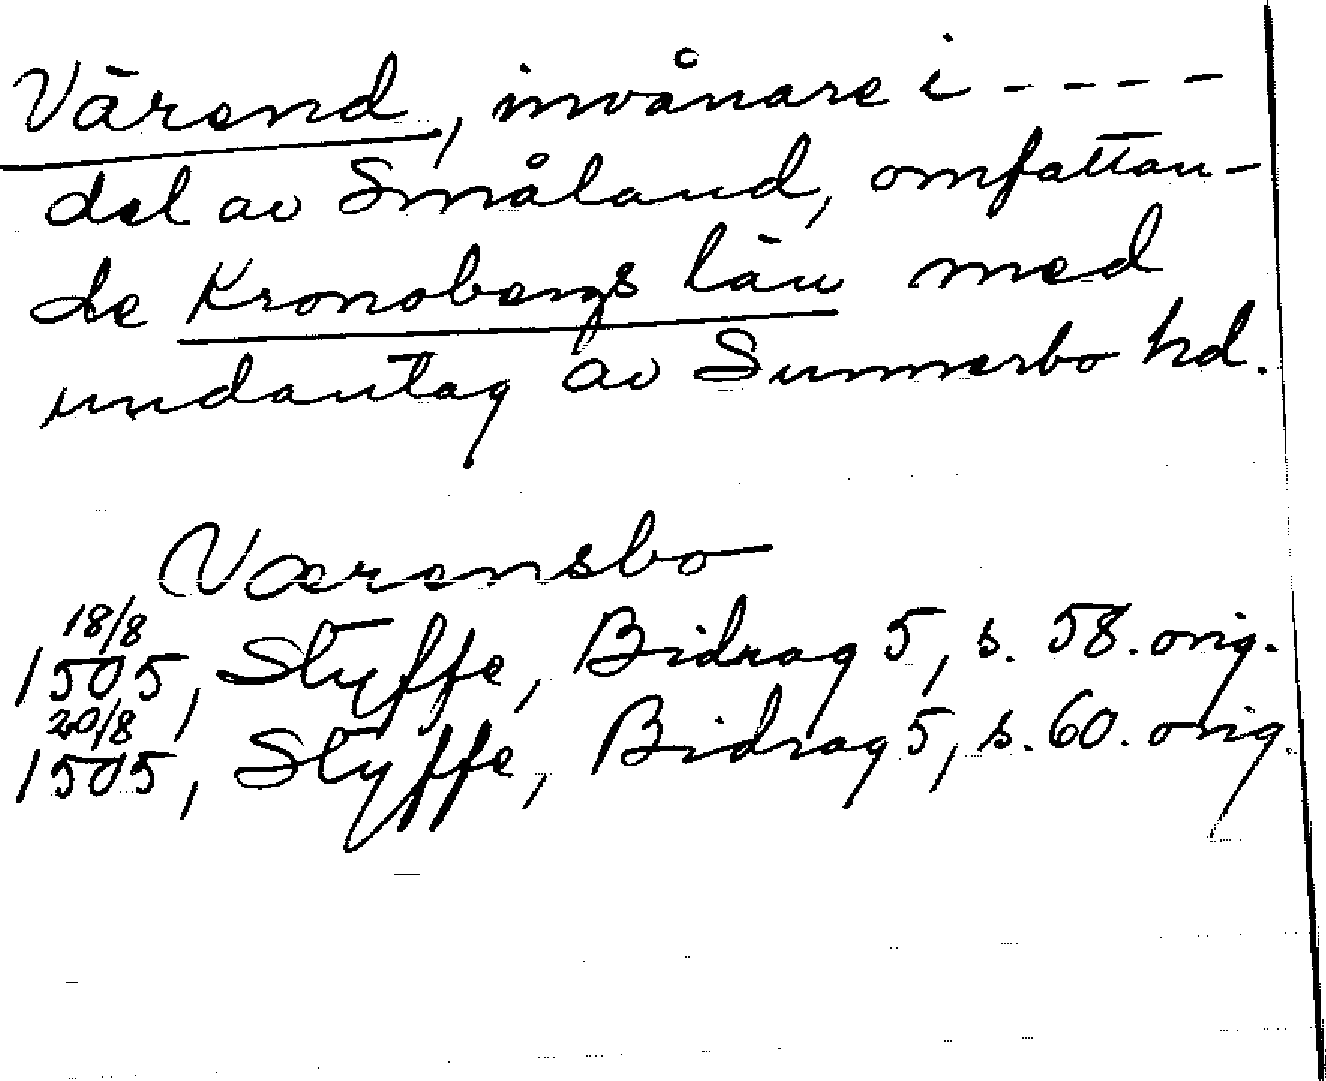 Värend, invånare i - - - -
del av Småland, omfattan-
de Kronobergs län med
undantag av Sunnerbo hd.
Værensbo
18/8
1505, Styffe, Bidrag 5, s. 58. orig.
20/8
1505, Styffe, Bidrag 5, s. 60. orig.